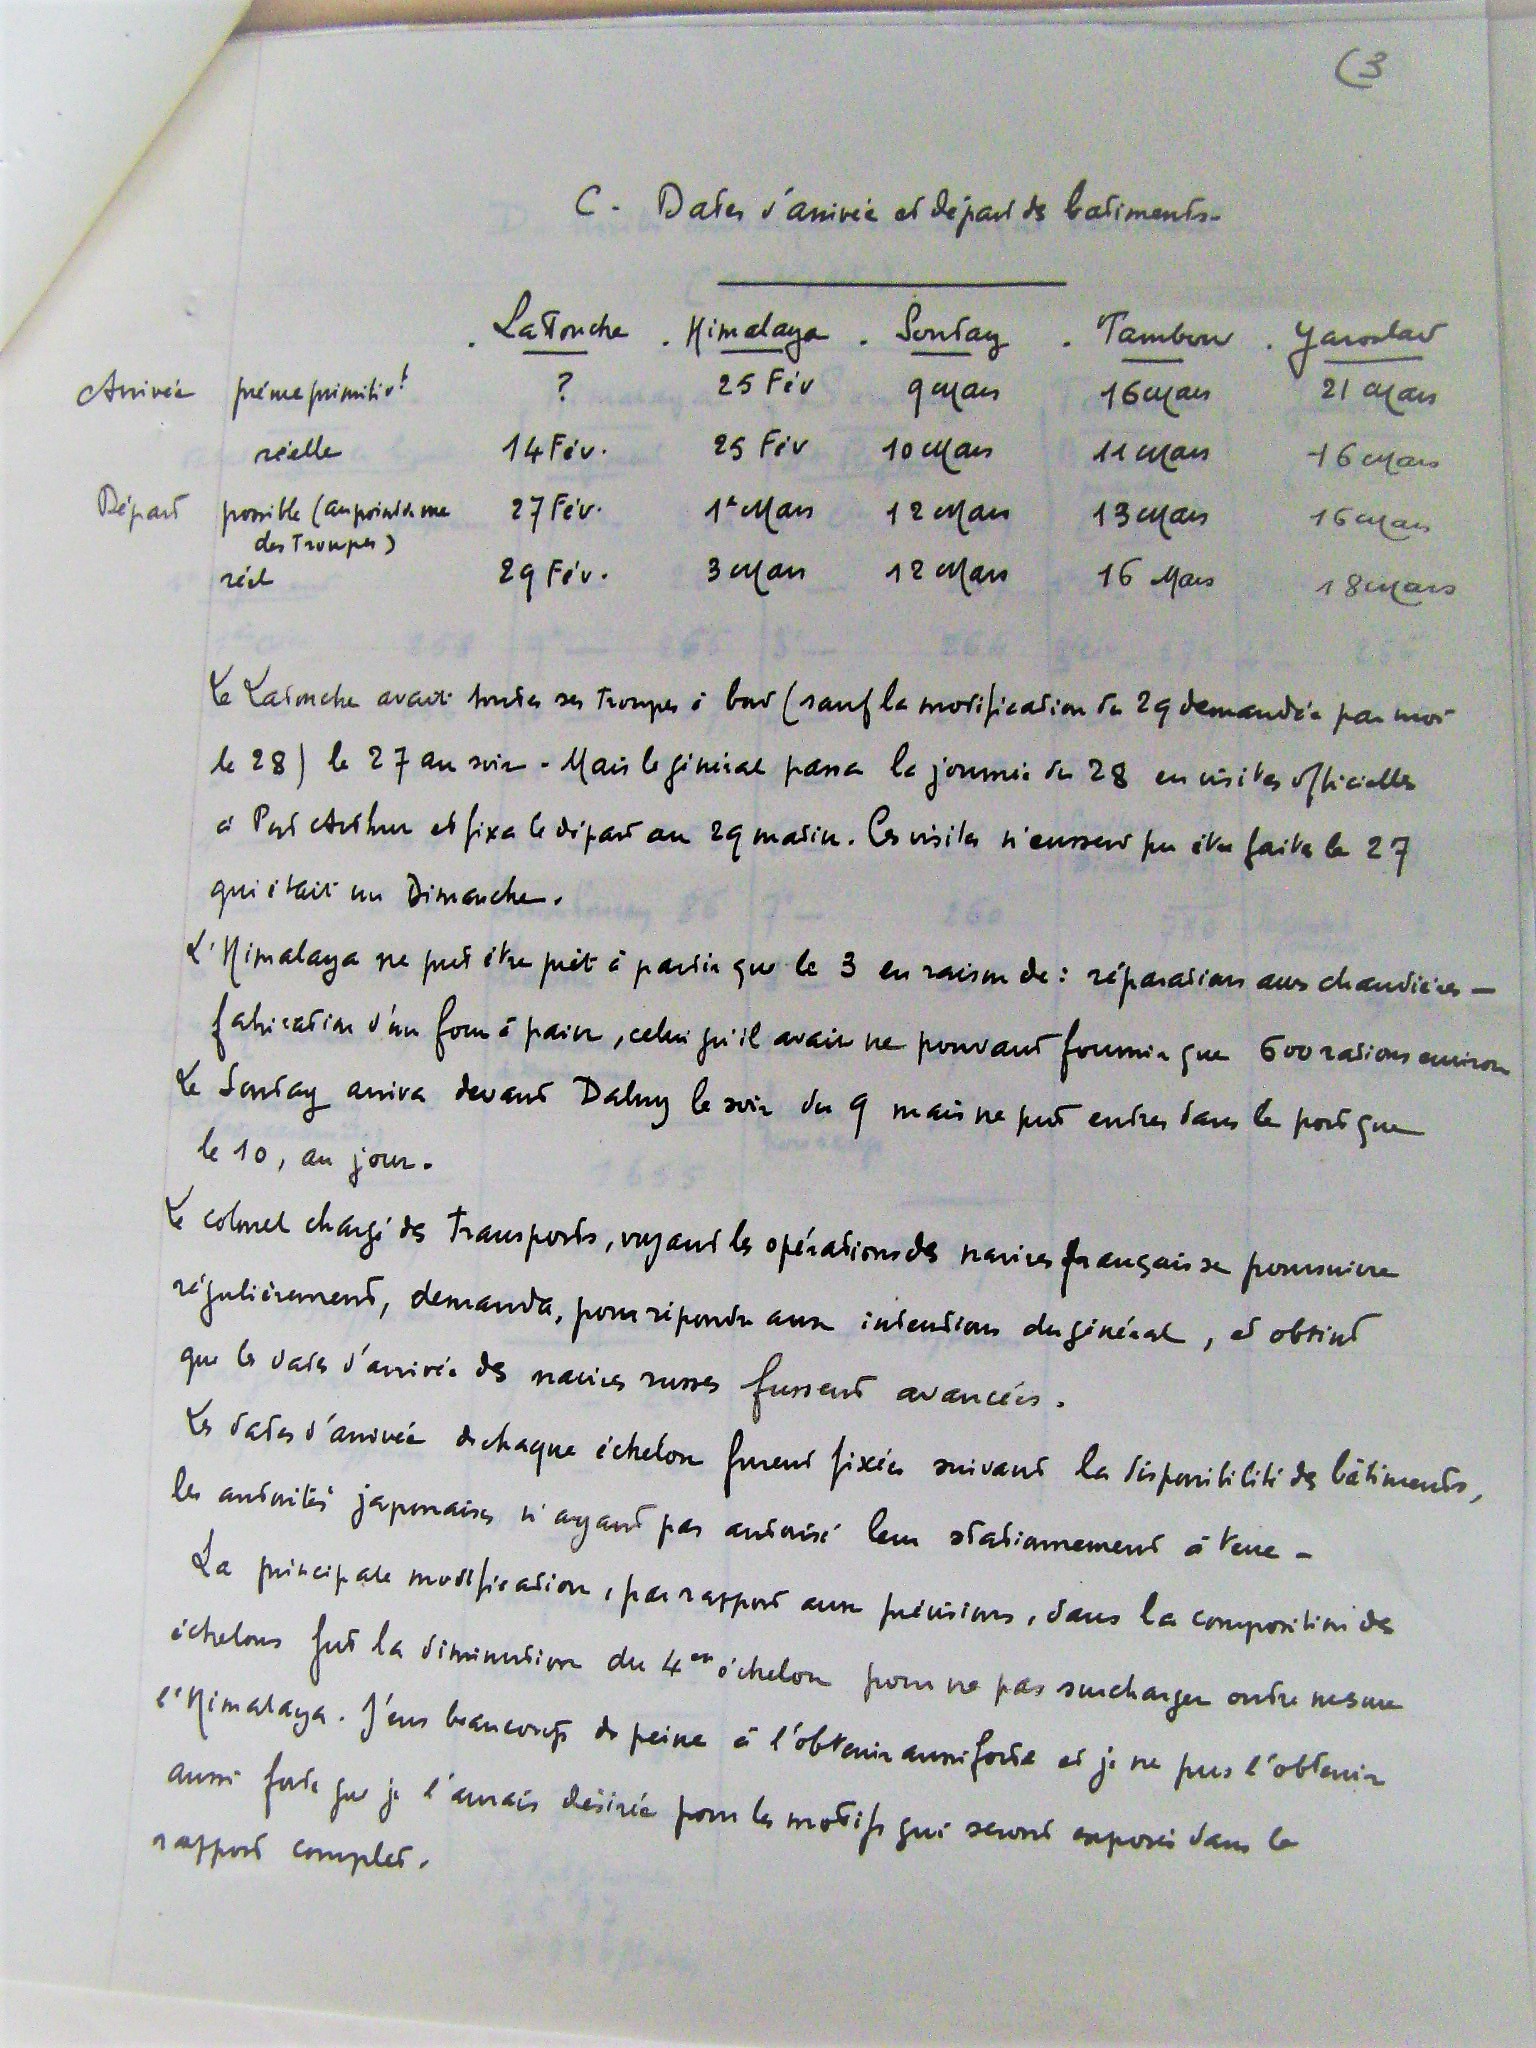 (3
C - Dates d'arrivée et départ des bâtiments -
. LaTouche . Himalaya . Sontay . Tambow . Yaroslav
Arrivée prévue primitivt ? 25 Fév 9 Mars 16 Mars 21 Mars
réelle 14 Fév. 25 Fév 10 Mars 11 Mars 16 Mars
Départ possible (au point de vue 27 Fév. 1er Mars 12 Mars 13 Mars 16 Mars
des Troupes)
réel 29 Fév. 3 Mars 12 Mars 16 Mars 18 Mars
Le Latouche avait toutes ses troupes à bord (sauf la modification du 29 demandée par moi
le 28) le 27 au soir - Mais le général passa la journée du 28 en visites officielles
à Port Arthur et fixa le départ au 29 matin. Ces visites n'eussent pu être faites le 27
qui était un Dimanche.
L'Himalaya ne put être prêt à partir que le 3 en raison de : réparations aux chaudières -
fabrication d'un four à pain, celui qu'il avait ne pouvant fournir que 600 rations environ
Le Sontay arriva devant Dalny le soir du 9 mais ne put entrer dans le port que
le 10, au jour.
Le colonel chargé des transports, voyant les opérations des navires français se poursuivre
régulièrement, demanda, pour répondre aux intentions du général, et obtint
que les dates d'arrivée des navires russes fussent avancées.
Les dates d'arrivée de chaque échelon furent fixées suivant la disponibilité des bâtiments,
les autorités japonaises n'ayant pas autorisé leur stationnement à terre -
La principale modification, par rapport aux prévisions, dans la composition des
échelons fut la diminution du 4en échelon pour ne pas surcharger outre mesure
l'Himalaya. J'eus beaucoup de peine à l'obtenir aussi forte et je ne pus l'obtenir
aussi forte que je l'aurais désirée pour les motifs qui seront exposés dans le
rapport complet.